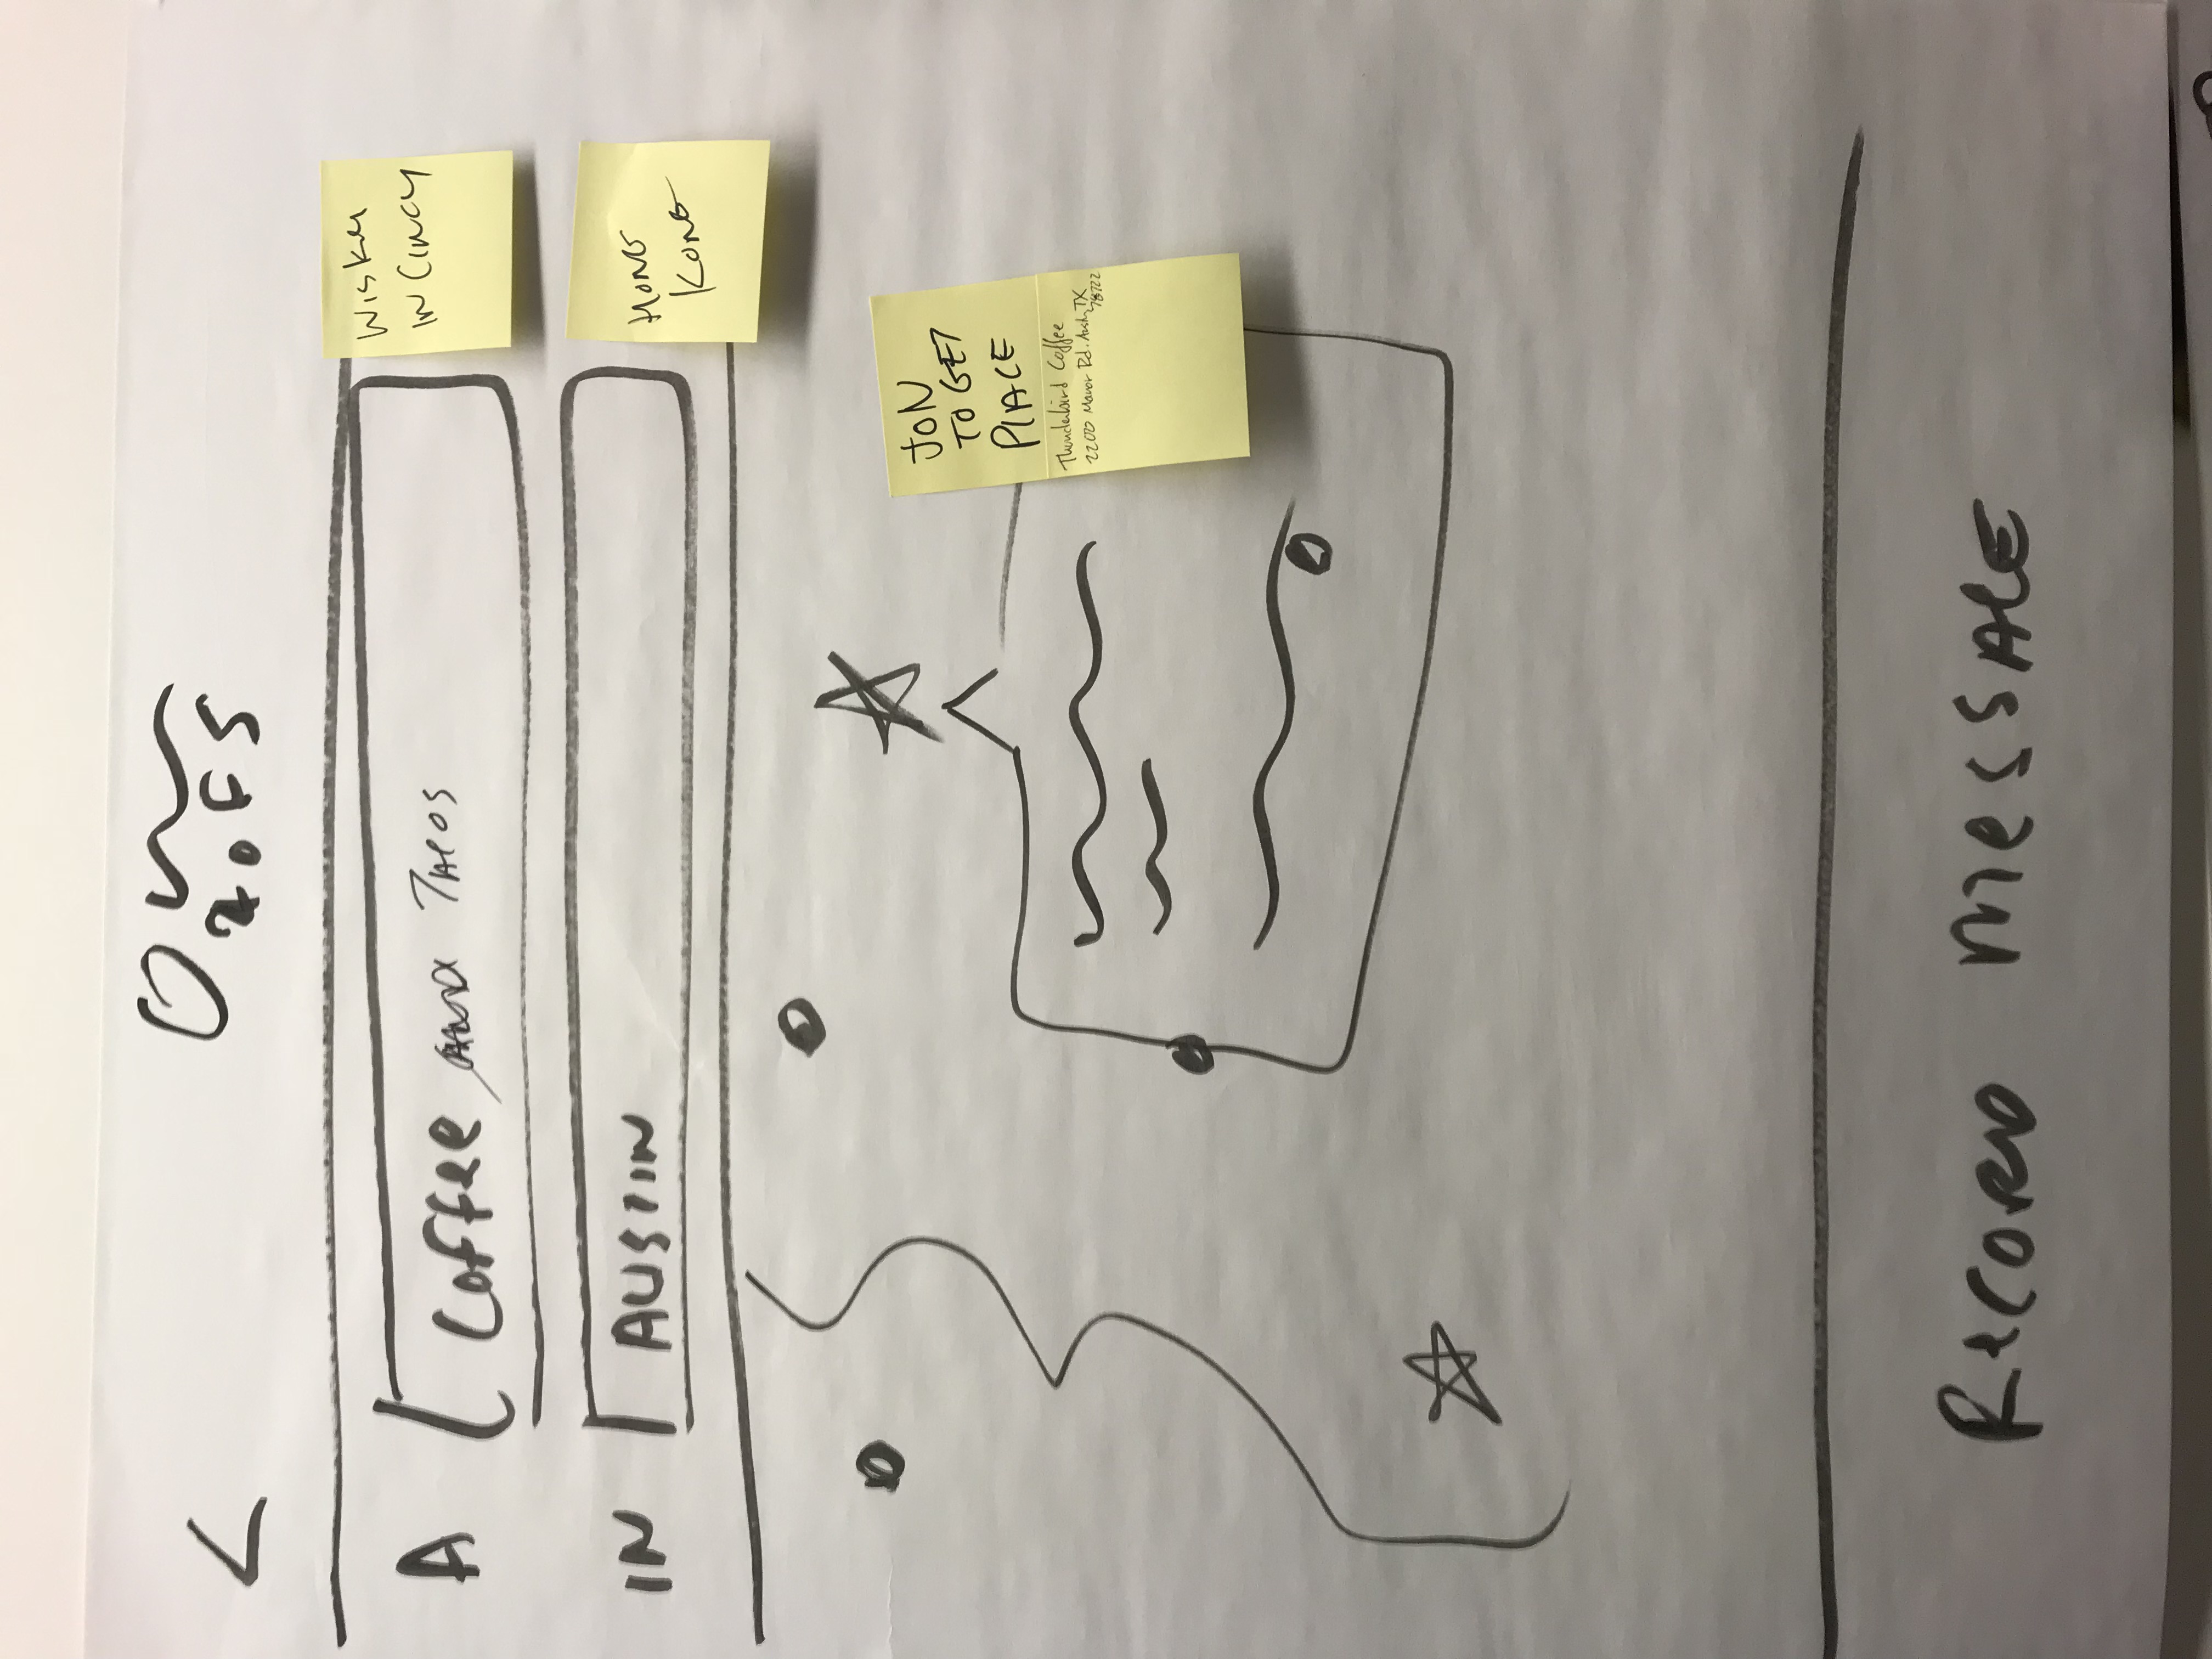 <
2 OF 5
A
Coffee and TACOS
WISKEY
IN CINCY
IN
AUSTIN
HONG
KONG
JON
TO GET
PLACE
Thunderbird Coffee
2200 Manor Rd. Austin, TX
78722
RECORD MESSAGE